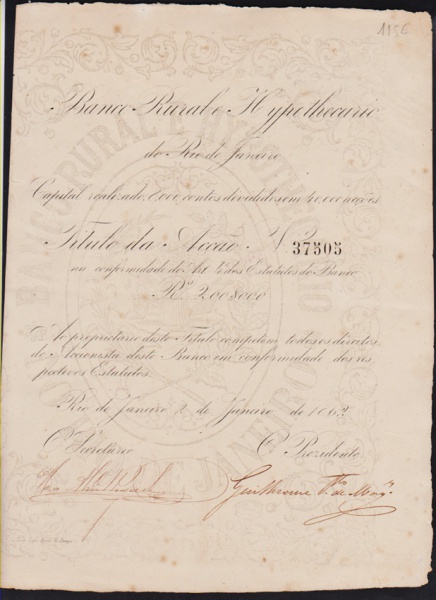 1156
Banco Rural e Hypothecario
do Rio de Janeiro
Capital realizado, 8.000 contos divididos em 40,000 acções
Titulo da Acção N.º 37505
na conformidade do Art. dos Estatutos do Banco
R.s 200$000
Ao proprietario deste Titulo competem todos os direitos
de Accionista deste Banco em conformidade dos res
pectivos Estatutos.
Rio de Janeiro 2 de Janeiro de 1862
O Secretario O Presidente
Guilherme P.to de Mag.es
BANCO RURAL E HYPOTHECARIO DO RIO DE JANEIRO